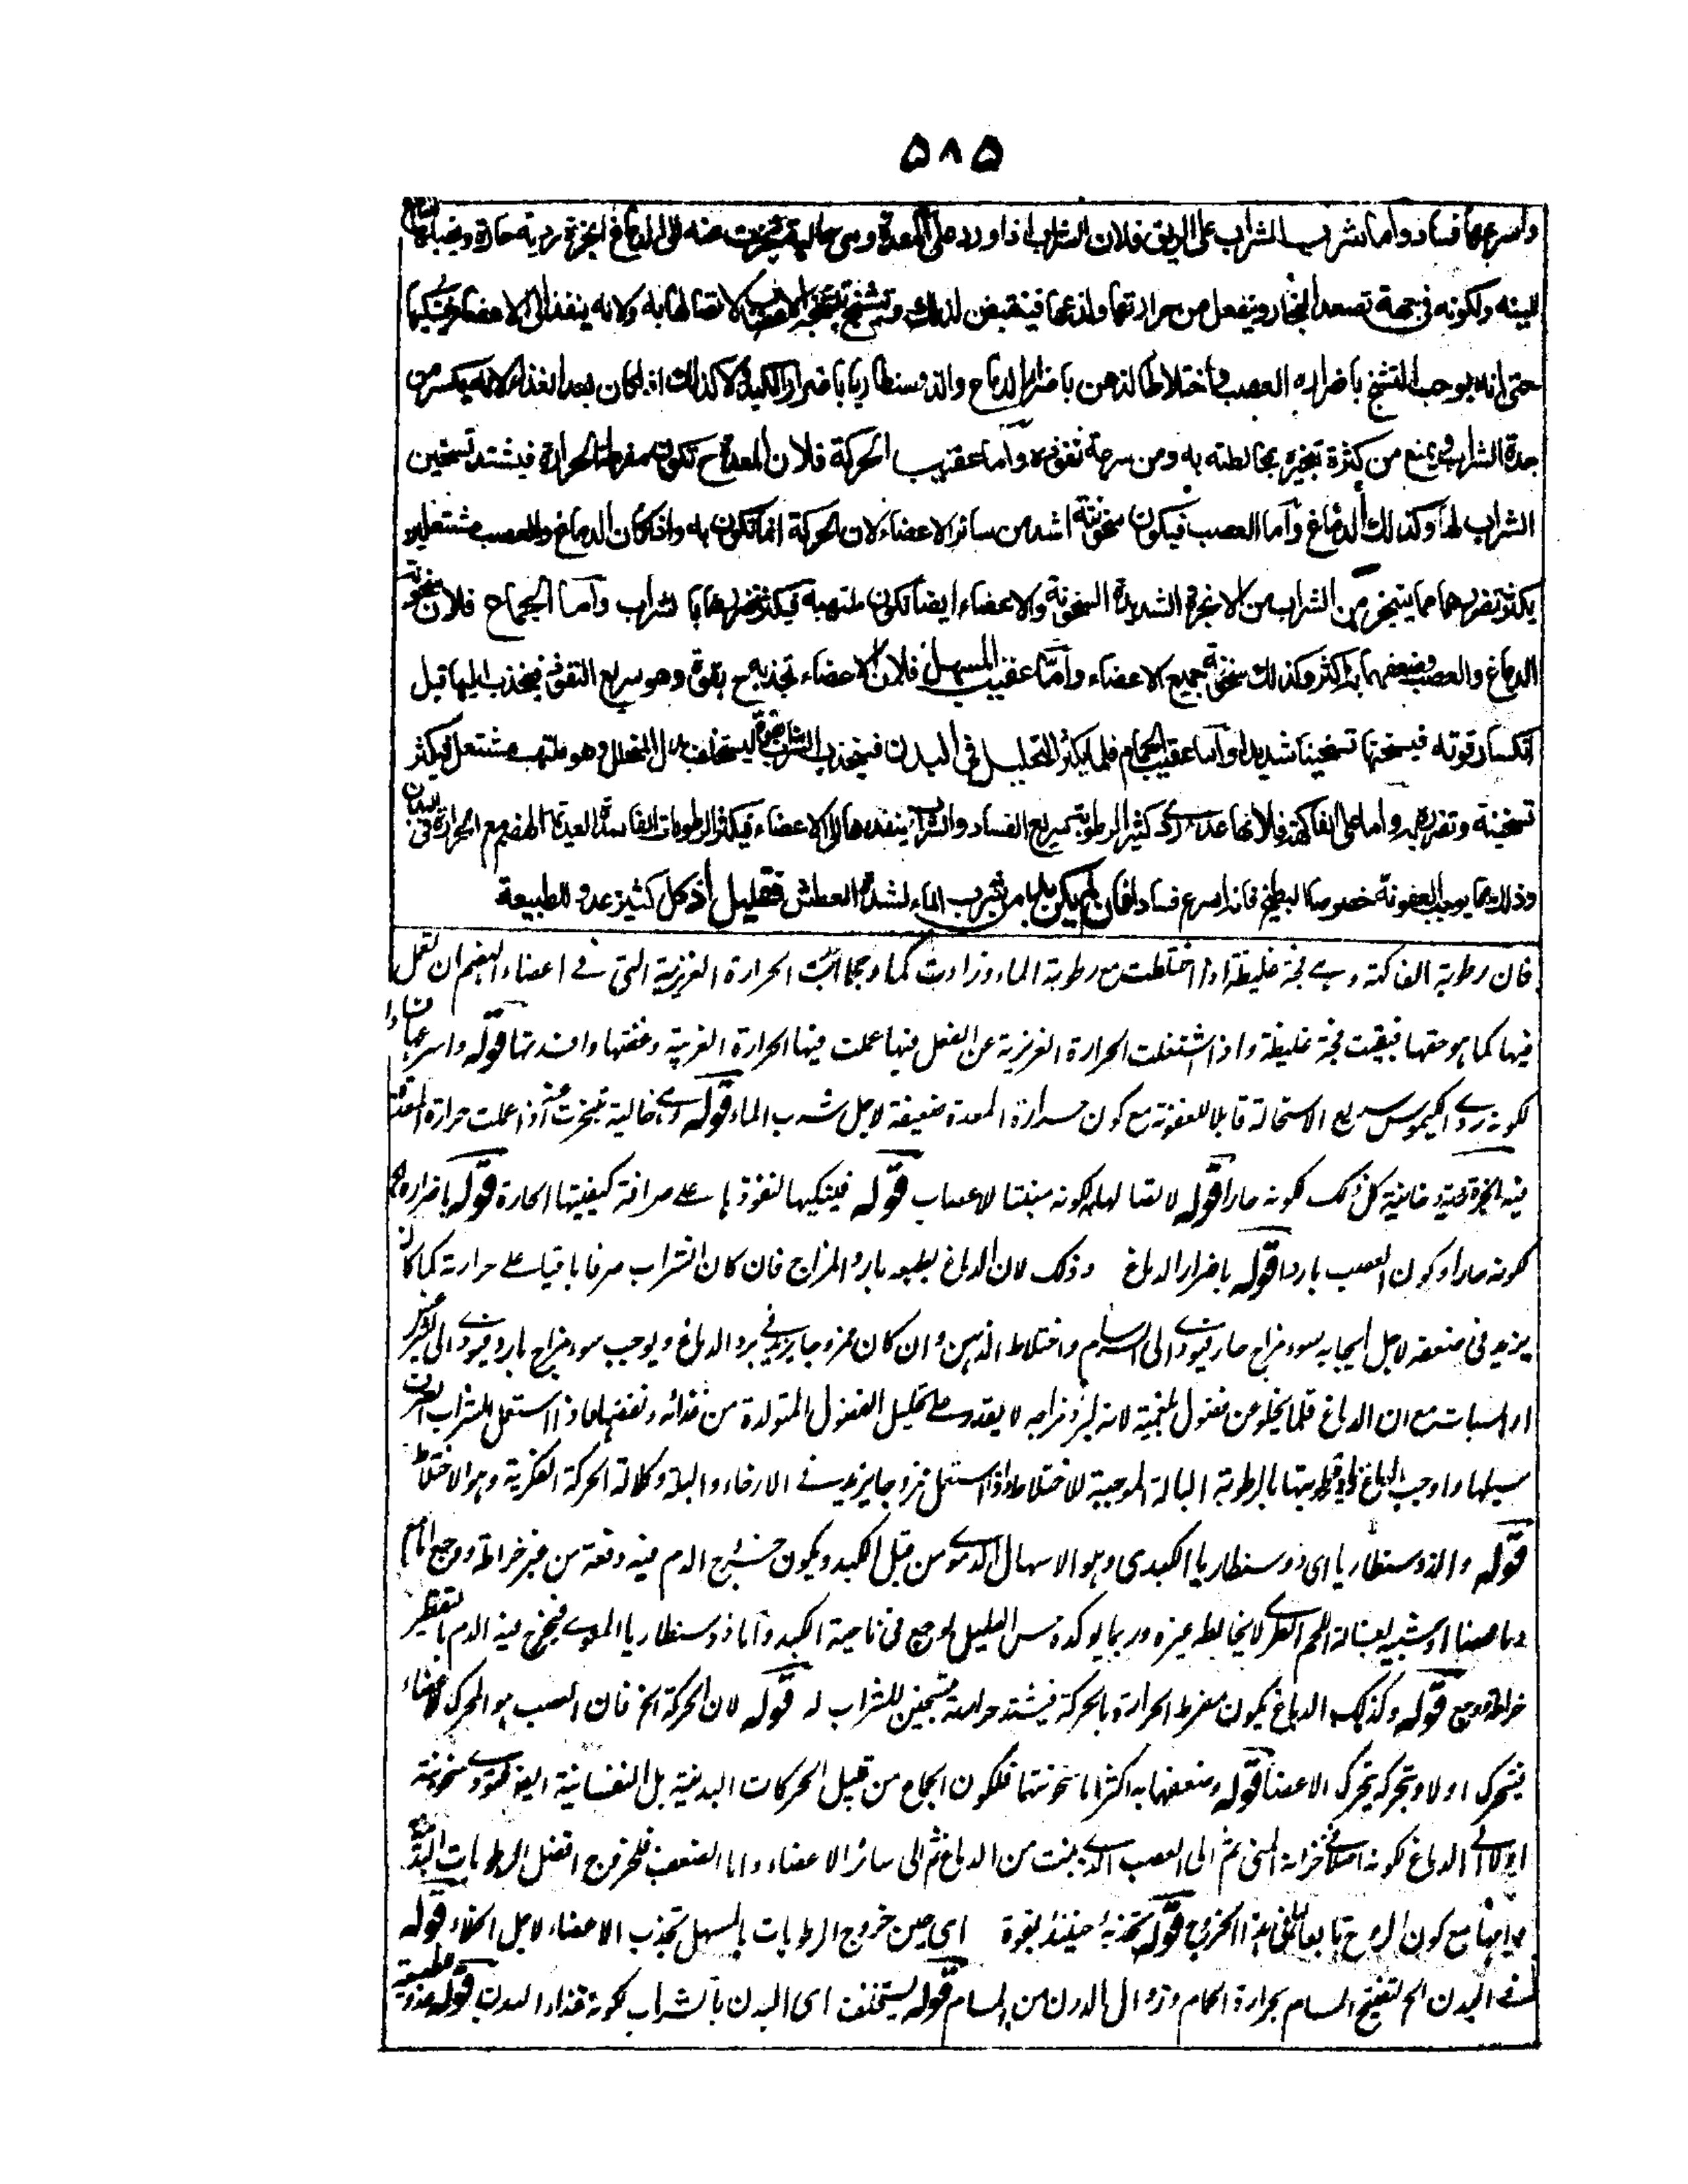 ٥٨٥
واسرعها فسادا واما شرب الشراب على الريق فلان الشراب اذا ورد على المعدة وهى خالية تبخرت عنه الى الدماغ ابخرة ردية حادة ويقبلها
للينه ولكونه فى جهة تصعد البخار وينفعل من حرارتها ولذعها فينقبض لذلك وتتشنج الاعصاب لاتصالها به ولانه ينفذ الى الاعضاء فينكيها
حتى انه يوجب التشنج باضراره العصب واختلاط الذهن باضرار الدماغ والذوسنطاريا باضرار الكبد ولا كذلك اذا كان بعد الغذاء لانه يكسر من
حدة الشراب ويمنع من كثرة تبخيره بمخالطته به ومن سرعة نفوذه واما عقيب الحركة فلان المعدة ح تكون مفرطة الحرارة فيشتد تسخين
الشراب لها وكذلك الدماغ واما العصب فيكون سخونته اشد من سائر الاعضاء لان الحركة انما تكون به واذا كان الدماغ والعصب مشتعلين
يكثر تضررهما مما يتبخر من الشراب من الابخرة الشديدة السخونة والاعضاء ايضا تكون ملتهبة فيكثر تضررها بالشراب واما الجماع فلان سخونة
الدماغ والعصب وضعفهما به اكثر وكذلك سخونة جميع الاعضاء واما عقيب المسهل فلان الاعضاء تجذبه ح بقوة وهو سريع النفوذ فينجذب اليها قبل
انكسار قوته فيسخنها تسخينا شديدا واما عقيب الحمام فلما يكثر التحليل فى البدن فينجذب الشراب ليستخلف بدل المتحلل وهو ملتهب مشتعل فيكثر
تسخينه وتضرره به واما على الفاكهة فلانها غذاء ردى كثير الرطوبة سريع الفساد والشراب ينفذها الى الاعضاء فيكثر الرطوبات الفاسدة العديمة الهضم مع الحرارة فى البدن
وذلك مما يوجب العفونة خصوصا البطيخ فانه اسرع فسادا فان لم يكن بد من شرب الماء لشدة العطش فقليل اذ كل كثير عدو للطبيعة
فان رطوبة الفاكهة وهے فجة غليظة اذا اختلطت مع رطوبة الماء وزادت كما وحجما الحرارة الغريزية التى فے اعضاء الهضم ان تعمل
فيها كما هو حقها فبقيت فجة غليظة واذا اشتغلت الحرارة الغريزية عن الفعل فيها عملت فيها الحرارة الغريبة وعفنتها وافسدتها قوله واسرعها فسادا
لكونه ردے الكيموس سريع الاستحالة قابلا للعفونة مع كون حرارة المعدة ضعيفة لاجل شرب الماء قوله وهے خالية تبخرت عنه اذا عملت حرارة المعدة
فيه كل ذلك لكونه حارا قوله لاتصالها به لكونه منبتا للاعصاب قوله فينكيها لنفوذها على صرافة كيفيتها الحارة قوله باضراره
لكونه حارا وكون العصب باردا قوله باضرار الدماغ وذلك لان الدماغ بطبعه بارد المزاج فان كان الشراب صرفا باقيا على حرارته كما كان
يزيد فى ضعفه لاجل ايجابه سوء مزاج حار فيؤدى الى السرسام واختلاط الذهن وان كان ممزوجا يزيد فى برد الدماغ ويوجب سوء مزاج بارد فيؤدى الى
او السبات مع ان الدماغ قلما يخلو عن فضول بلغمية لانه لبرد مزاجه لا يقدر على تحليل الفضول المتولدة من غذائه ونفضها فاذا استعمل الشراب الصرف
سيلها واوجب الرطوبة البالة الموجبة للاختلاط واذا استعمل ممزوجا يزيد فے الارخاء والبلة وكلالة الحركة الفكرية وهو الاختلاط
قوله والذوسنطاريا اى ذوسنطاريا الكبدى وهو الاسهال الدموى من قبل الكبد ويكون خروج الدم فيه دفعة من غير خراطة ووجع
دما صرفا او شبيه بغسالة اللحم الطرى لا يخالطه غيره وربما يؤكده حس العليل لوجع فى ناحية الكبد واما ذوسنطاريا المعوى فيخرج فيه الدم بالتقطير
خراطة ووجع قوله وكذلك الدماغ يكون مفرط الحرارة بالحركة فيشتد حرارته بتسخين الشراب له قوله لان الحركة الخ فان العصب هو المحرك للاعضاء
فيتحرك اولا وبتحركه يتحرك الاعضاء قوله وضعفهما به اكثر اما سخونتهما فلكون الجماع من قبيل الحركات البدنية بل النفسانية ايضا
اولا الى الدماغ لكونه خزانة المنى ثم الى العصب الذى ينبت من الدماغ ثم الى سائر الاعضاء واما الضعف فلخروج افضل الرطوبات
مع كون الروح تابعا للمنى فى هذا الخروج قوله تجذبه حينئذ بقوة اى حين خروج الرطوبات بالمسهل تجذب الاعضاء لاجل الخلاء قوله
فے البدن الخ لتفتيح المسام بحرارة الحمام وزوال الدرن من المسام قوله يستخلف اى البدن بالشراب لكونه غذاء للبدن قوله عدو للطبيعة